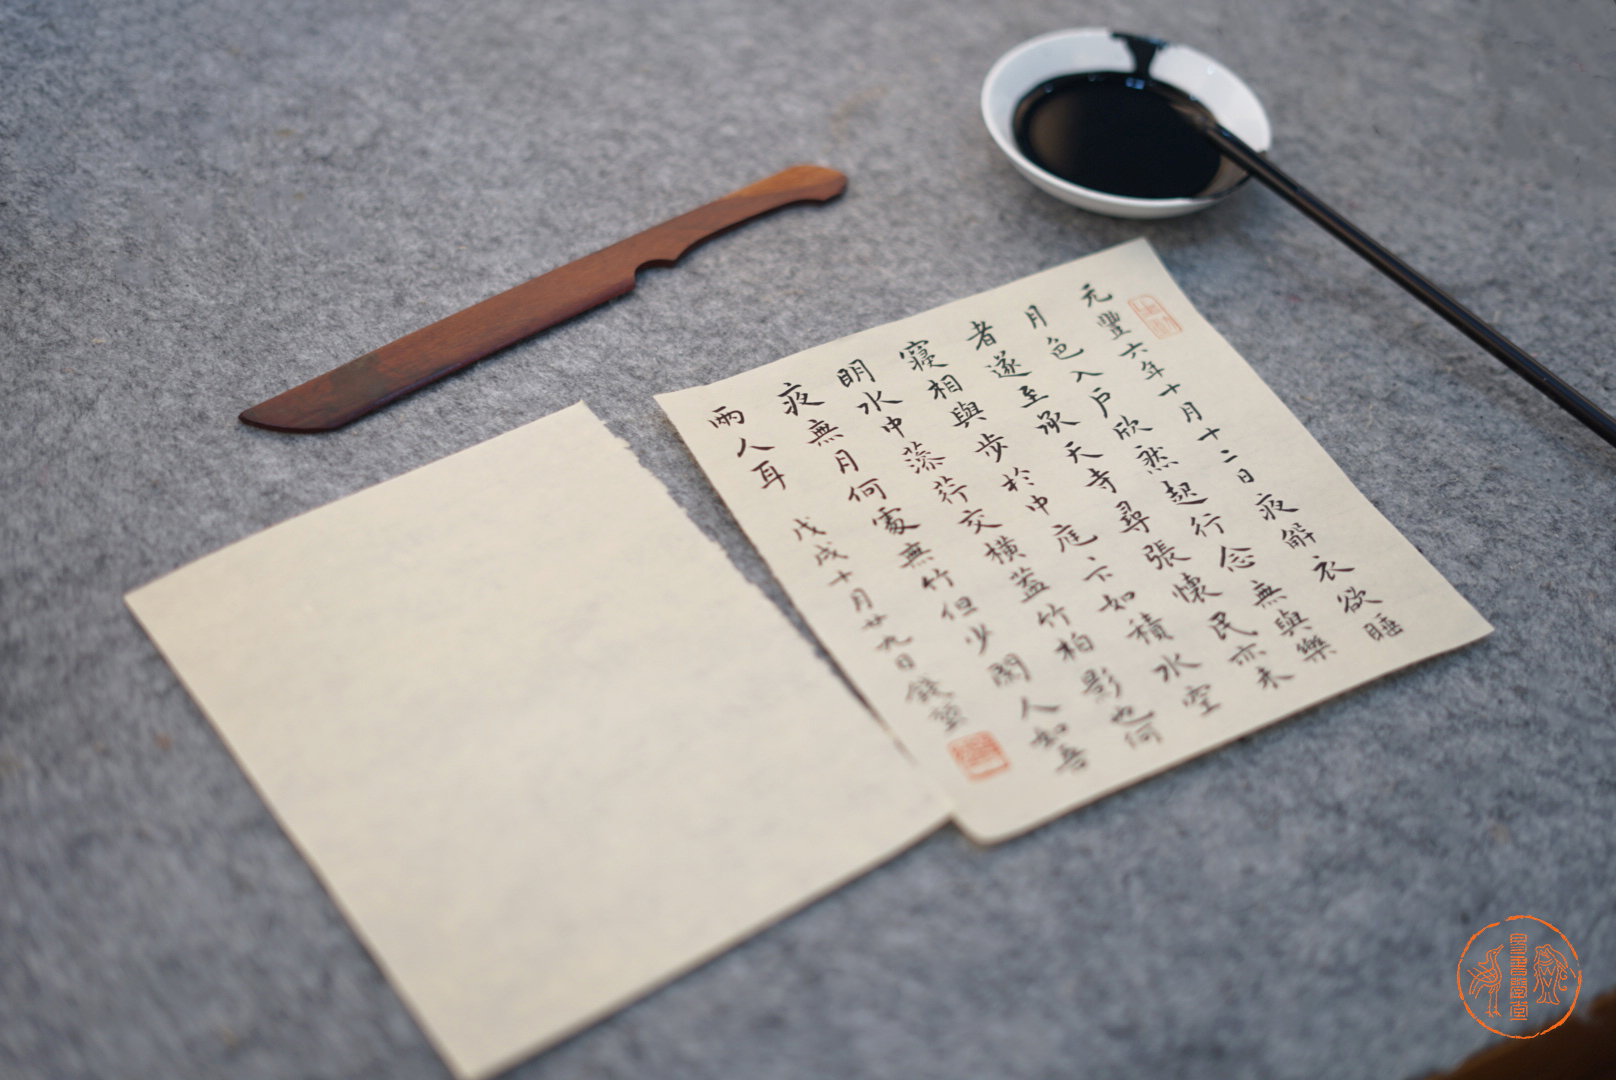 元豐六年十月十二日夜解衣欲睡
月色入户欣然起行念無與樂
者遂至承天寺尋張懷民亦未
寢相與步於中庭下如積水空
明水中藻荇交橫蓋竹柏影也何
夜無月何處無竹但少閑人如吾
兩人耳 戊戌十月廿九日